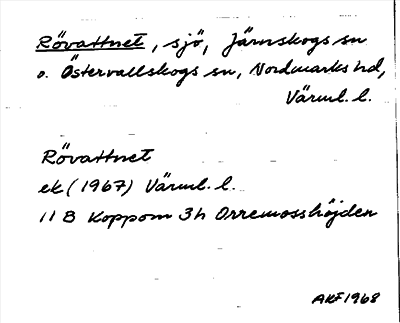 Rövattnet, sjö, Järnskogs sn
o. Östervallskogs sn, Nordmarks hd,
Värml. l.
Rövattnet
ek (1967) Värml. l.
11 B Koppom 3h Orremosshöjden
AKF 1968